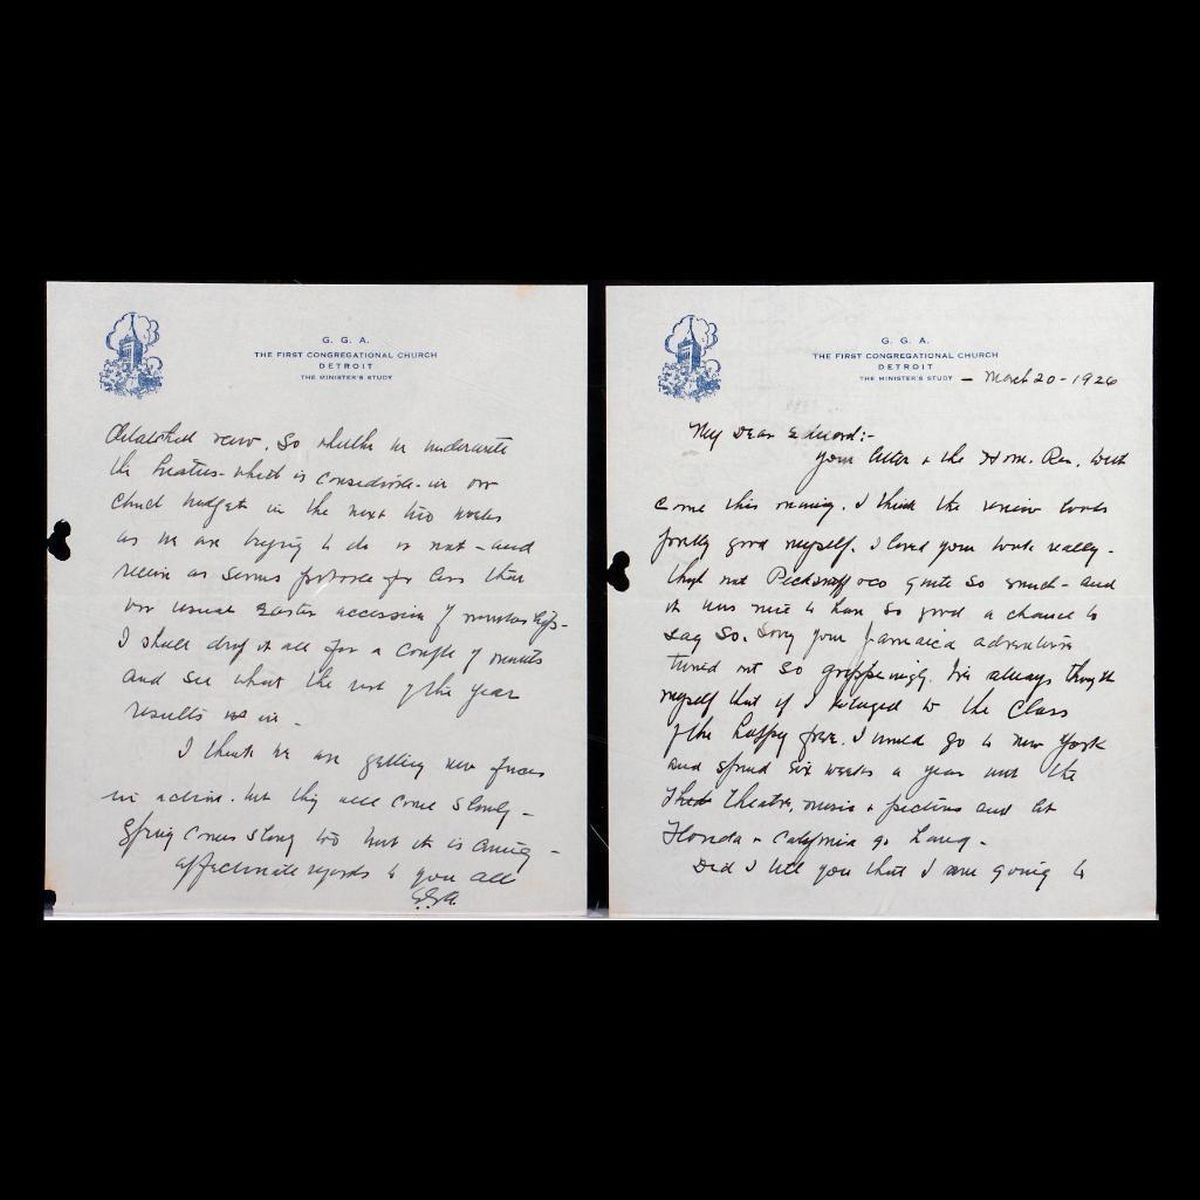 G. G. A.
THE FIRST CONGREGATIONAL CHURCH
DETROIT
THE MINISTER'S STUDY
detatched view. So whether we underwrite
the - which is considerable - in our
church budget in the next two weeks
as we are trying to do or not - and
receive as seems probable far less than
our usual Easter accession of memberships -
I shall drop it all for a couple of months
and see what the rest of the year
results in -
I think we are getting new forces
in action. but they all come slowly -
Spring comes slowly too but it is coming -
affectionate regards to you all
G.G.A.
G. G. A.
THE FIRST CONGREGATIONAL CHURCH
DETROIT
THE MINISTER'S STUDY - March 20 - 1926
My Dear Edward:-
your letter + the Hom. Rev. both
come this morning. I think the review looks
pretty good myself. I loved your book really -
though not quite so much - and
it was nice to have so good a chance to
say so. Sorry your Jamaica adventure
turned out so. I've always thought
myself that if I belonged to the class
of the happy free. I would go to New York
and spend six weeks a year with the
Theatre, music + pictures and let
Florida + California go hang -
Did I tell you that I am going to